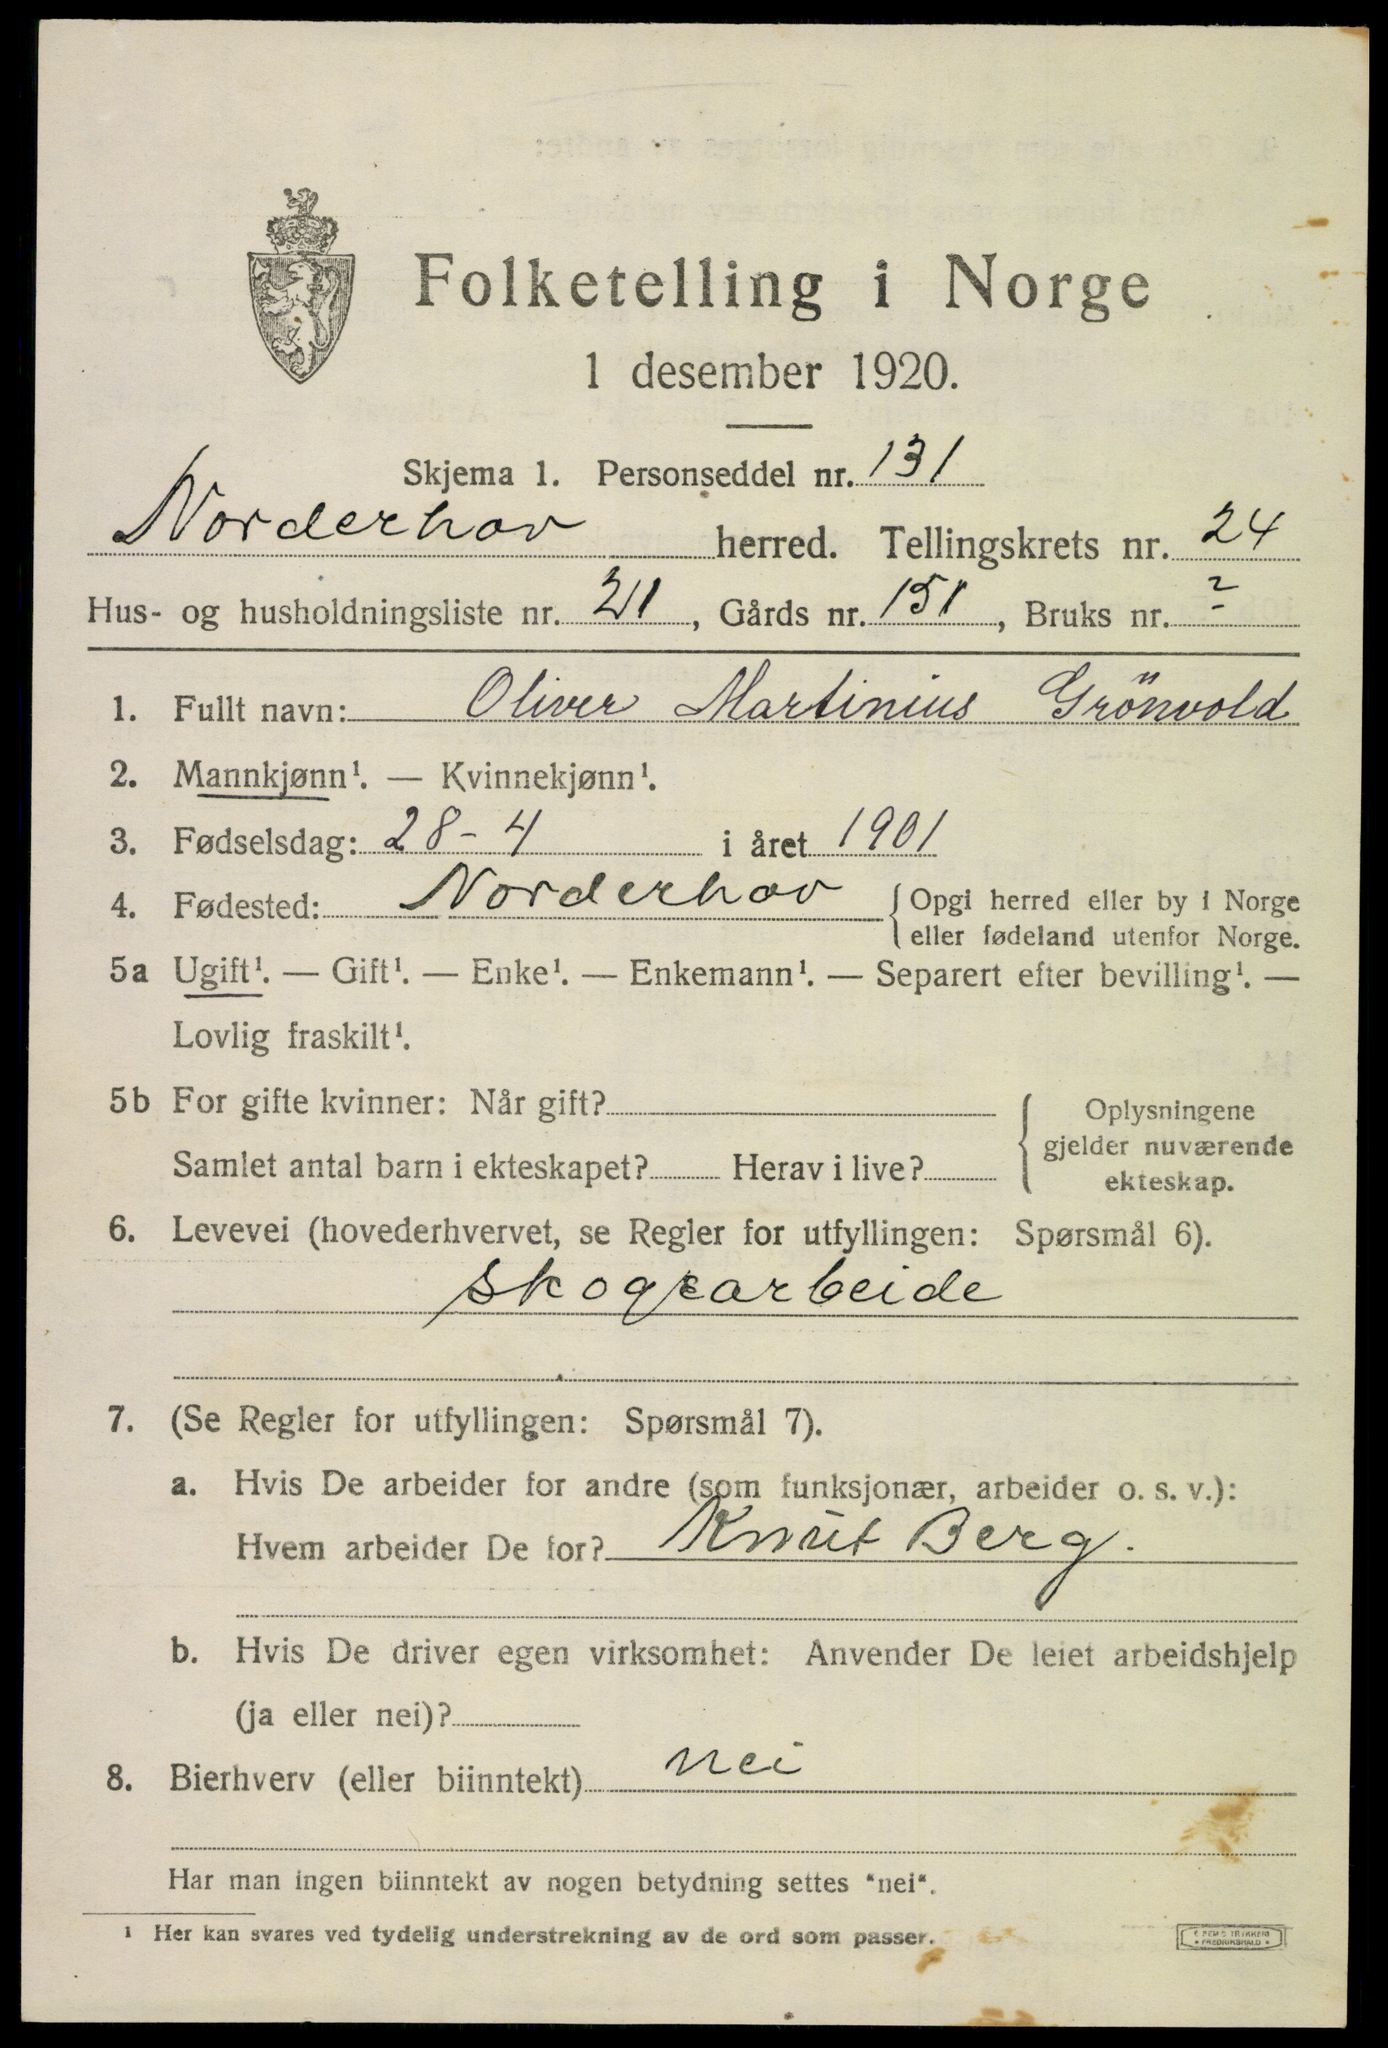 Folketelling i Norge
1 desember 1920.
Skjema 1. Personseddel nr. 131
Norderhov herred. Tellingskrets nr. 24
Hus- og husholdningsliste nr. 21, Gårds nr. 151, Bruks nr. 2
1. Fullt navn: Oliver Martinius Grönvold
2. Mannkjønn¹. — Kvinnekjønn¹.
3. Fødselsdag: 28-4 i året 1901
4. Fødested: Norderhov { Opgi herred eller by i Norge
eller fødeland utenfor Norge.
5a Ugift¹. — Gift¹. — Enke¹. — Enkemann¹. — Separert efter bevilling¹. —
Lovlig fraskilt¹.
5b For gifte kvinner: Når gift? { Oplysningene
gjelder nuværende
Samlet antal barn i ekteskapet? Herav i live?
ekteskap.
6. Levevei (hovederhvervet, se Regler for utfyllingen: Spørsmål 6).
skogsarbeide
7. (Se Regler for utfyllingen: Spørsmål 7).
a. Hvis De arbeider for andre (som funksjonær, arbeider o. s. v.):
Hvem arbeider De for? Knut Berg.
b. Hvis De driver egen virksomhet: Anvender De leiet arbeidshjelp
(ja eller nei)?
8. Bierhverv (eller biinntekt) nei
Har man ingen biinntekt av nogen betydning settes "nei".
¹ Her kan svares ved tydelig understrekning av de ord som passer.
FREDRIKSHALD